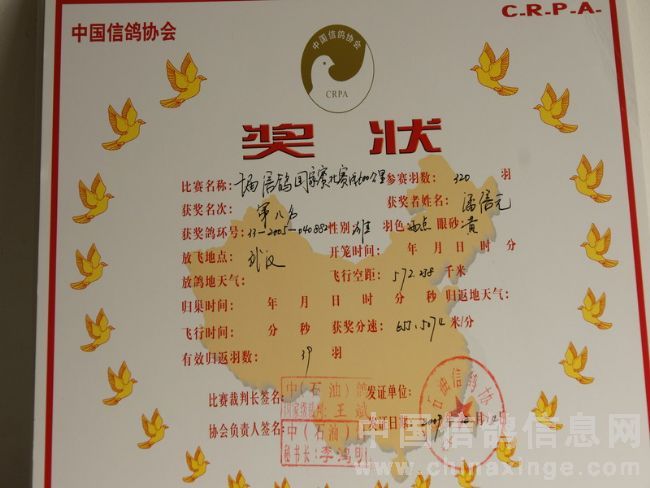 C-R-P-A-
中国信鸽协会
中国信鸽协会
CRPA
奖 状
比赛名称: 信鸽国家赛 参赛羽数: 320 羽
获奖名次: 第八名 获奖者姓名:
获奖鸽环号: 33-2005-040882 性别 雄 羽色 雨点 眼砂: 黄
放飞地点: 武汉 开笼时间: 年 月 日 时 分
放鸽地天气: 飞行空距: 572.238 千米
归巢时间: 年 月 日 时 分 秒 归返地天气:
飞行时间: 分 秒 获奖分速: 653.5072 米/分
有效归返羽数: 39 羽
比赛裁判长签名: 中(石油)鸽 王斌 发证单位:
协会负责人签名: 中(石油) 秘书长:李鸿明 发证日期:
石油信鸽协
中国信鸽信息网
www.chinaxinge.com